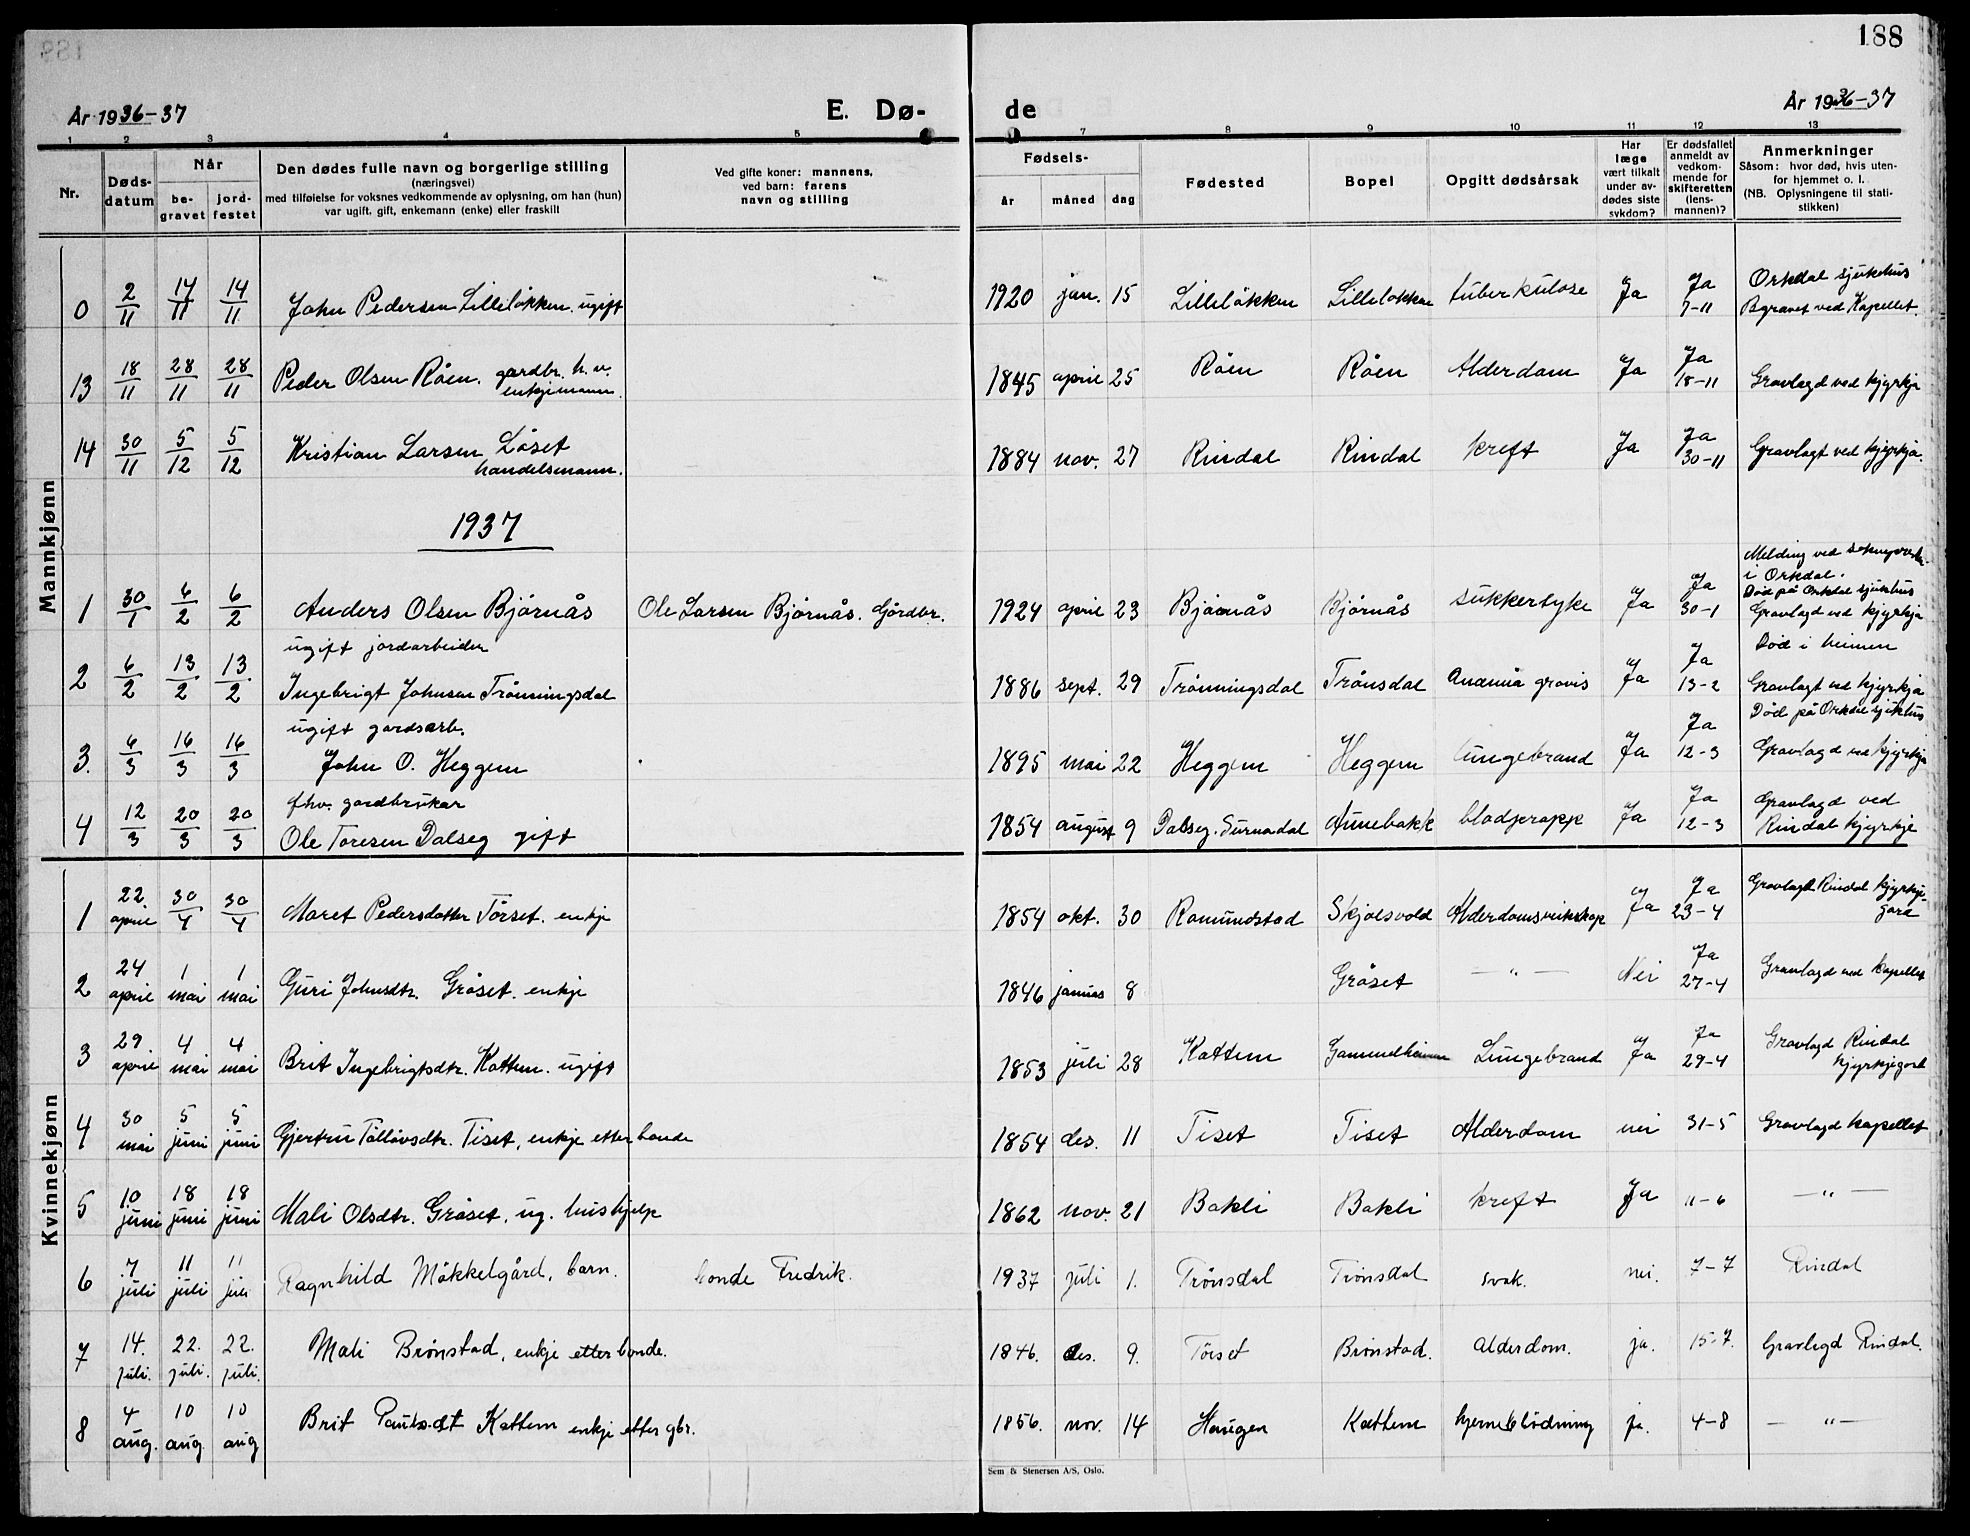 188
År 1936-37 E. Dø- de År 1936-37
1 2 3 4 5 7 8 9 10 11 12 13
Nr. Døds-datum Når be-gravet jord-festet Den dødes fulle navn og borgerlige stilling (næringsvei) med tilføielse for voksnes vedkommende av oplysning, om han (hun) var ugift, gift, enkemann (enke) eller fraskill Ved gifte koner: mannens, ved barn: farens navn og stilling Fødsels- år måned dag Fødested Bopel Opgitt dødsårsak Har læge vært tilkalt under av-dødes siste sykdom? Er dødsfallet anmeldt av vedkom-mende for skifteretten (lens-mannen)? Anmerkninger Såsom: hvor død, hvis uten-for hjemmet o. l. (NB. Oplysningene til stati-stikken)
Mannkjønn
0 2/11 14/11 14/11 John Pedersen Lilleløkken. ugift 1920 jan. 15 Lilleløkken Lilleløkken tuberkulose Ja Ja 7-11 Orkdal sjukehus Bgravet ved Kapellet.
13 18/11 28/11 28/11 Peder Olsen Røen. gardbr. h.v. enkjemann. 1845 april 25 Røen Røen Alderdom Ja Ja 18-11 Gravlagd ved kjyrkja
14 30/11 5/12 5/12 Kristian Larsen Løset handelsmann. 1884 nov. 27 Rindal Rindal kreft Ja Ja 30-11 Gravlagt ved kjyrkja.
1937
1 30/1 6/2 6/2 Anders Olsen Bjørnås Ole Larsen Bjørnås. Gårdbr. 1924 april 23 Bjørnås Bjørnås sukkersyke Ja Ja 30-1 Melding ved i Orkdal. Død på Orkdal sjukehus Gravlagd ved kjyrkja
2 6/2 13/2 13/2 ugift jordarbeider Ingebrigt Johnsen Trønningsdal 1886 sept. 29 Trønningsdal Trønsdal Anæmia gravis Ja Ja 13-2 Død i heimen Gravlagt ved kjyrkja
3. 6/3 16/3 16/3 ugift gardsarb. John O. Heggem 1895 mai 22 Heggem Heggem lungebrand Ja Ja 12-3 Død på Orkdal sjukehus Gravlagd ved kjyrkja
4 12/3 20/3 20/3 fhv. gardbrukar Ole Toresen Dalseg gift 1854 august 9 Dalseg. Surnadal Aunebakk blodpropp Ja Ja 12-3 Gravlagd ved Rindal kjyrkje
Kvinnekjønn
1 22 april 30/4 30/4 Maret Pedersdatter Tørset. enkje 1854 okt. 30 Romundstad Skjølsvold Alderdomsveikskap Ja Ja 23-4 Gravlagt Rindal kjyrkje-gard
2 24 april 1 mai 1 mai Guri Johnsdtr. Grøset. enkje 1846 januar 8 Grøset — " — Nei Ja 27-4 Gravlagd ved kapellet
3 29 april 4 mai 4 mai Brit Ingebrigtsdtr. Kattem. ugift 1853 juli 28 Kattem Gammelheimen Lungebrand Ja Ja 29-4 Gravlagd Rindal kjyrkjegard
4 30 mai 5 juni 5 juni Gjertru Tølløvsdtr. Tiset, enkje etter bonde 1854 des. 11 Tiset Tiset Alderdom nei 31-5 Gravlagd kapellet
5 10 juni 18 juni 18 juni Mali Olsdtr. Grøset, ug. hushjelp 1862 nov. 21 Bakli Bakli kreft Ja 11-6 — " —
6 7 juli 11 juli 11 juli Ragnhild Møkkelgård, barn. bonde Fredrik. 1937 juli 1. Trønsdal Trønsdal svak. nei. 7-7 Rindal
7 14. juli. 22. juli. 22. juli. Mali Brønstad, enkje etter bonde. 1846. des. 9. Tørset Brønstad. Alderdom. ja. 15-7. Gravlagd Rindal.
8 4 aug. 10 aug. 10 aug Brit Paulsdt Kattem enkje etter gbr. 1856. nov. 14 Haugen Kattem hjerneblødning ja. 4-8 — " —
Sem & Stenersen A/S, Oslo.